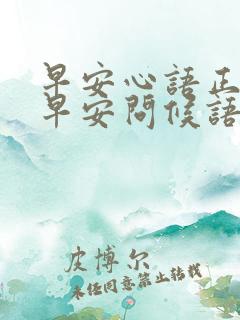 早安心語正
早安問候語
皮博尔
未经同意禁止转载